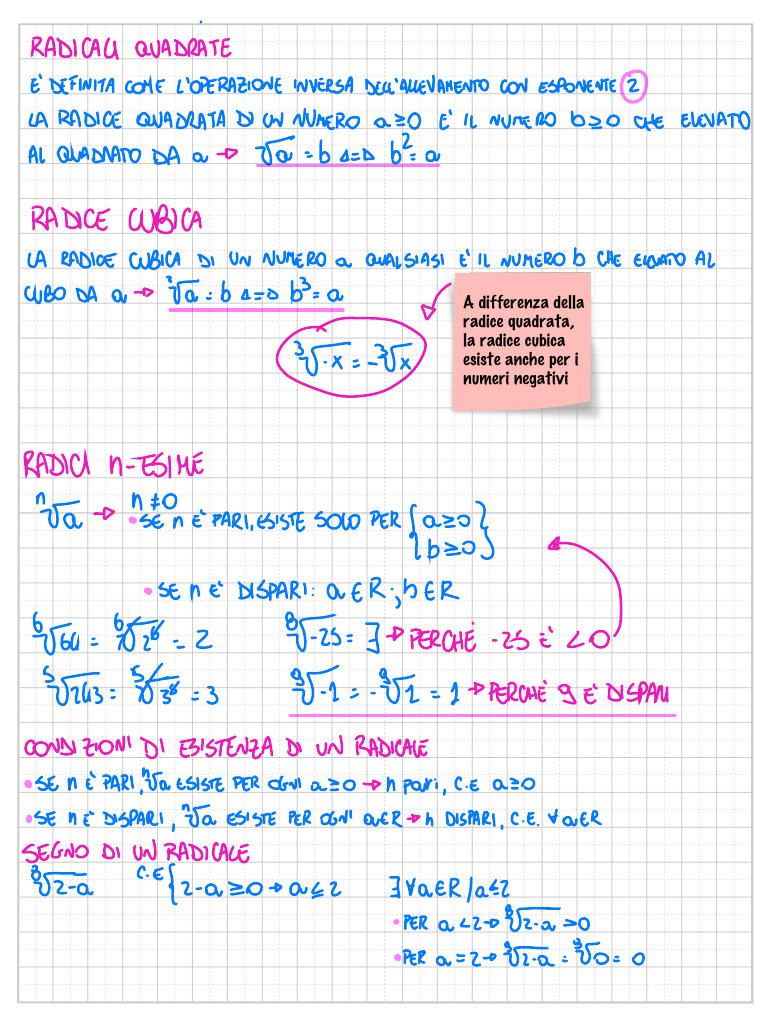 RADICALI QUADRATE
E' DEFINITA COME L'OPERAZIONE INVERSA DELL'ALLEVAMENTO CON ESPONENTE 2
LA RADICE QUADRATA DI UN NUMERO a≥0 E' IL NUMERO b≥0 CHE ELEVATO
AL QUADRATO DA a → √a = b ⇔ b² = a
RADICE CUBICA
LA RADICE CUBICA DI UN NUMERO a QUALSIASI E' IL NUMERO b CHE ELEVATO AL
CUBO DA a → ³√a = b ⇔ b³ = a
A differenza della
radice quadrata,
la radice cubica
esiste anche per i
numeri negativi
³√-x = -³√x
RADICI n-ESIME
ⁿ√a → n ≠ 0
• SE n E' PARI, ESISTE SOLO PER { a≥0 }
{ b≥0 }
• SE n E' DISPARI: a∈R ; b∈R
⁶√64 = ⁶√2⁶ = 2 ⁸√-25 = ∃ → PERCHÉ -25 E' <0
⁵√243 = ⁵√3⁵ = 3 ⁹√-1 = -⁹√1 = 1 → PERCHÉ 9 E' DISPARI
CONDIZIONI DI ESISTENZA DI UN RADICALE
• SE n E' PARI, ⁿ√a ESISTE PER OGNI a≥0 → n pari, C.E a≥0
• SE n E' DISPARI, ⁿ√a ESISTE PER OGNI a∈R → n DISPARI, C.E. ∀a∈R
SEGNO DI UN RADICALE
⁸√2-a C.E { 2-a ≥0 → a≤2 ∃ ∀a∈R / a≤2
• PER a<2 → ⁸√2-a >0
• PER a=2 → ⁸√2-a = ⁸√0 = 0